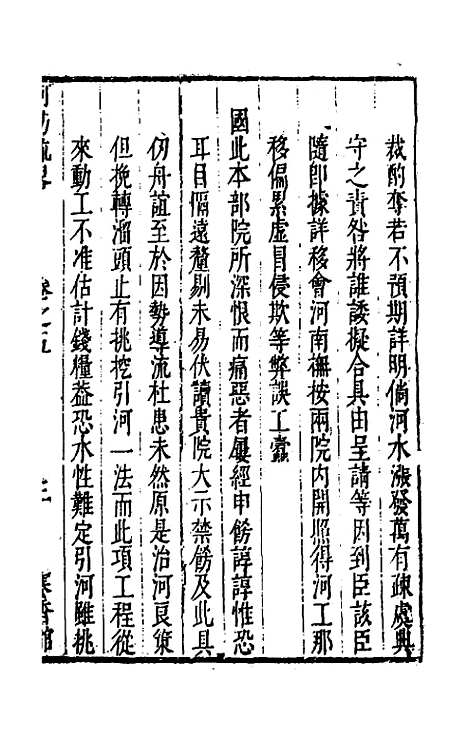 裁酌奪若不預期詳明倘河水漲發萬有疎處典
守之責咎將誰諉擬合具由呈請等因到臣該臣
隨卽據詳移會河南撫按兩院内開照得河工那
移偏累虛冒侵欺等弊誤工蠹
國此本部院所深恨而痛惡者屢經申飭諄諄惟恐
耳目偪遠釐剔未易伏讀貴院大示禁飭及此具
仞舟誼至於因勢導流杜患未然原是治河良策
但挽轉溜頭止有挑挖引河一法而此項工程從
來動工不准估計錢糧益恐水性難定引河雖挑
河防疏畧 卷之五